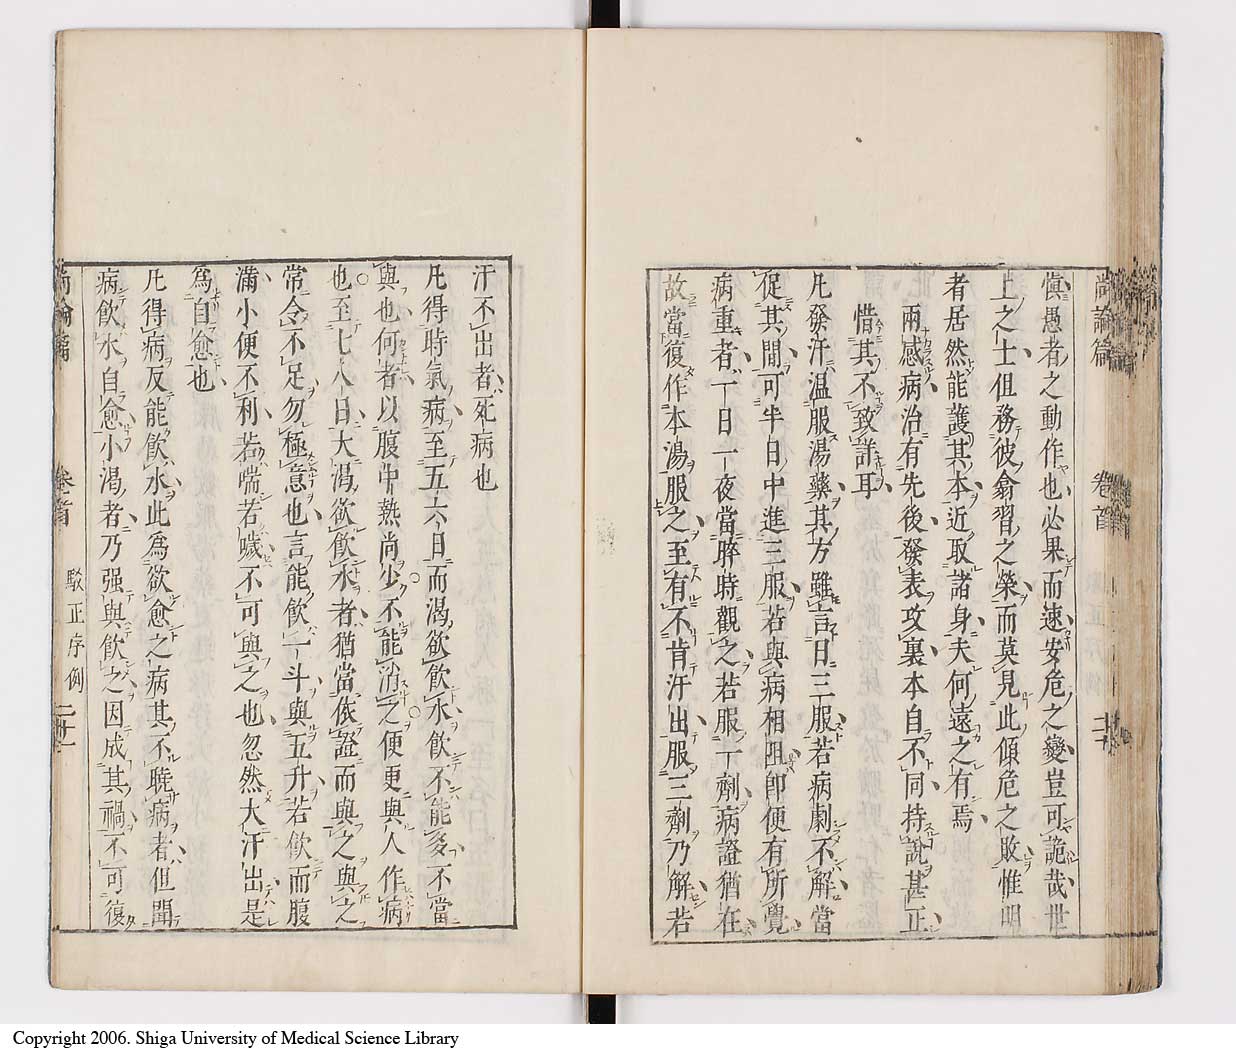 尚論篇 卷首
愼愚者之動作也必果而速安危之變豈可詭哉世
上之士但務彼翕習之榮而莫見此傾危之敗惟明
者居然能護其本近取諸身夫何遠之有焉
兩感病治有先後發表攻裏本自不同持說甚正
惜其不致詳耳
凡發汗温服湯藥其方雖言日三服若病劇不解當
促其間可半日中進三服若與病相阻卽便有所覺
病重者一日一夜當晬時觀之若服一劑病證猶在
故當復作本湯服之至有不肯汗出服三劑乃解若
汗不出者死病也
凡得時氣病至五六日而渴欲飮水飮不能多不當
與也何者以腹中熱尚少不能消之便更與人作病
也至七八日大渴欲飮水者猶當依證而與之與之
常令不足勿極意也言能飮一斗與五升若飮而腹
滿小便不利若喘若噦不可與之也忽然大汗出是
爲自愈也
凡得病反能飮水此爲欲愈之病其不曉病者但聞
病飮水自愈小渴者乃强與飮之因成其禍不可復
尚論篇 卷首 駁正序例
Copyright 2006. Shiga University of Medical Science Library